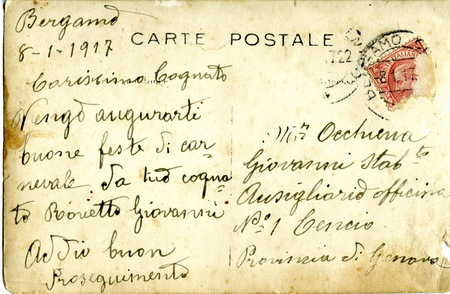 Bergamo
8-1-1917
CARTE POSTALE
Carissimo Cognato
Vengo augurarti
buone feste di car=
nevale da tuo cogna
to Rovetto Giovanni
Addio buon
Proseguimento
BERGAMO
Occhiena
Giovanni Stab-to
Ausigliario officina
No 1 Cencio
Provincia di Genova